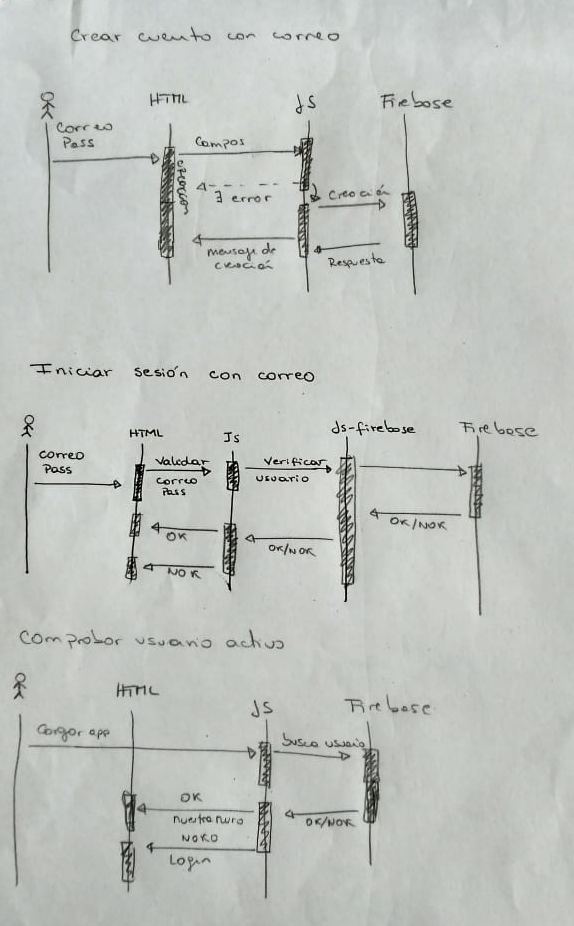 Crear cuenta con correo
HTML JS Firebase
Correo
Pass
Campos
creación
∃ error
Creación
mensaje de
creación
Respuesta
Iniciar sesión con correo
HTML Js Js-firebase Firebase
Correo
Pass
Validar
correo
Pass
Verificar
usuario
OK
NOK
OK/NOK
OK/NOK
Comprobar usuario activo
HTML JS Firebase
Cargar app
busca usuario
OK
muestra muro
OK/NOK
Login